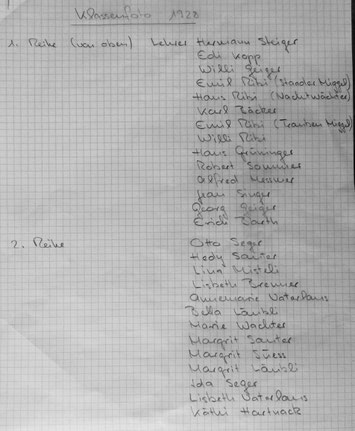 Klassenfoto 1928
1. Reihe (von oben) Lehrer Hermann Steiger
Edi Kopp
Willi Geiger
Emil Ribi (Stander Miggel)
Hans Ribi (Nachtwächter)
Karl Bäcker
Emil Ribi (Trauben Miggel)
Willi Ribi
Hans Grüninger
Robert Sommer
Alfred Messmer
Jean Singer
Georg Geiger
Erich Barth
2. Reihe Otto Seger
Hedy Sauter
Lina Misteli
Lisbeth Brenner
Annemarie Vaterlaus
Bella Läubli
Marie Wachter
Margrit Sauter
Margrit Süess
Margrit Läubli
Ida Seger
Lisbeth Vaterlaus
Käthi Hartnack